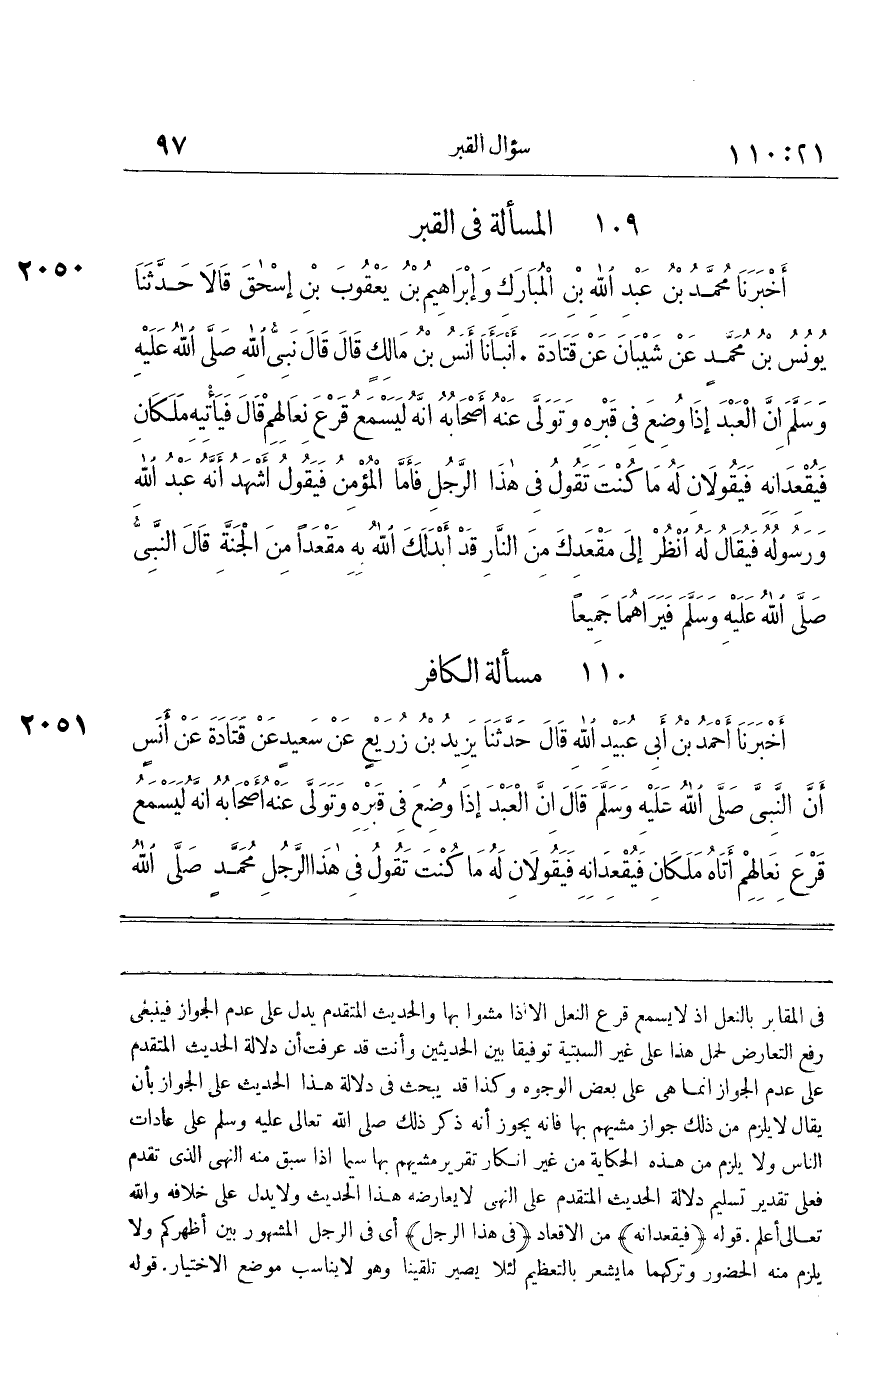 ١١٠:٢١ سؤال القبر ٩٧
١٠٩ المسألة فى القبر
أَخْبَرَنَا مُحَمَّدُ بْنُ عَبْدِ اللهِ بْنِ الْمُبَارَكِ وَإِبْرَاهِيمُ بْنُ يَعْقُوبَ بْنِ إِسْحٰقَ قَالَا حَدَّثَنَا ٢٠٥٠
يُونُسُ بْنُ مُحَمَّدٍ عَنْ شَيْبَانَ عَنْ قَتَادَةَ . أَنْبَأَنَا أَنَسُ بْنُ مَالِكٍ قَالَ قَالَ نَبِىُّ اللهِ صَلَّى اللهُ عَلَيْهِ
وَسَلَّمَ انَّ الْعَبْدَ إِذَا وُضِعَ فِى قَبْرِهِ وَتَوَلَّى عَنْهُ أَصْحَابُهُ انَّهُ لَيَسْمَعُ قَرْعَ نِعَالِهِمْ قَالَ فَيَأْتِيهِ مَلَكَانِ
فَيُقْعِدَانِهِ فَيَقُولَانِ لَهُ مَا كُنْتَ تَقُولُ فِى هٰذَا الرَّجُلِ فَأَمَّا الْمُؤْمِنُ فَيَقُولُ أَشْهَدُ أَنَّهُ عَبْدُ اللهِ
وَرَسُولُهُ فَيُقَالُ لَهُ اُنْظُرْ إِلَى مَقْعَدِكَ مِنَ النَّارِ قَدْ أَبْدَلَكَ اللهُ بِهِ مَقْعَدًا مِنَ الْجَنَّةِ قَالَ النَّبِىُّ
صَلَّى اللهُ عَلَيْهِ وَسَلَّمَ فَيَرَاهُمَا جَمِيعًا
١١٠ مسألة الكافر
أَخْبَرَنَا أَحْمَدُ بْنُ أَبِى عُبَيْدِ اللهِ قَالَ حَدَّثَنَا يَزِيدُ بْنُ زُرَيْعٍ عَنْ سَعِيدٍ عَنْ قَتَادَةَ عَنْ أَنَسٍ ٢٠٥١
أَنَّ النَّبِىَّ صَلَّى اللهُ عَلَيْهِ وَسَلَّمَ قَالَ انَّ الْعَبْدَ إِذَا وُضِعَ فِى قَبْرِهِ وَتَوَلَّى عَنْهُ أَصْحَابُهُ انَّهُ لَيَسْمَعُ
قَرْعَ نِعَالِهِمْ أَتَاهُ مَلَكَانِ فَيُقْعِدَانِهِ فَيَقُولَانِ لَهُ مَا كُنْتَ تَقُولُ فِى هٰذَا الرَّجُلِ مُحَمَّدٍ صَلَّى اللهُ
فى المقابر بالنعل اذ لايسمع قرع النعل الا اذا مشوا بها والحديث المتقدم يدل على عدم الجواز فينبغى
رفع التعارض لحمل هذا على غير السبتية توفيقا بين الحديثين وأنت قد عرفت أن دلالة الحديث المتقدم
على عدم الجواز انما هى على بعض الوجوه وكذا قد يبحث فى دلالة هذا الحديث على الجواز بأن
يقال لايلزم من ذلك جواز مشيهم بها فانه يجوز أنه ذكر ذلك صلى الله تعالى عليه وسلم على عادات
الناس ولا يلزم من هذه الحكاية من غير انكار تقرير مشيهم بها سيما اذا سبق منه النهى الذى تقدم
فعلى تقدير تسليم دلالة الحديث المتقدم على النهى لايعارضه هذا الحديث ولايدل على خلافه والله
تعالى أعلم . قوله ﴿فيقعدانه﴾ من الاقعاد ﴿فى هذا الرجل﴾ أى فى الرجل المشهور بين أظهركم ولا
يلزم منه الحضور وتركهما مايشعر بالتعظيم لئلا يصير تلقينا وهو لايناسب موضع الاختيار . قوله